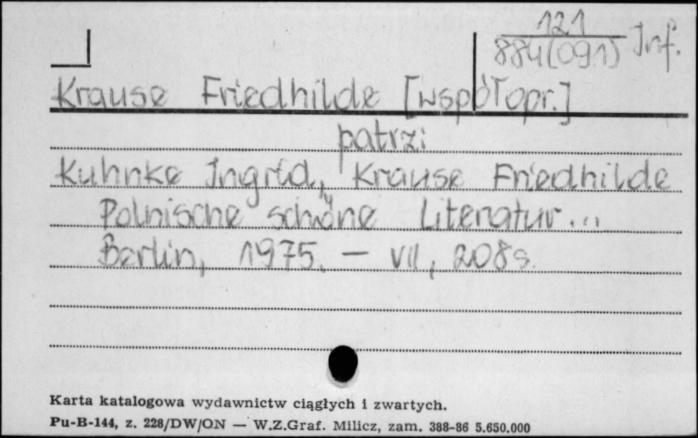 121
884(091) Inf.
Krause Friedhilde [współopr.]
patrzi
Kuhnke Ingrid, Krause Friedhilde
Polnische schöne Literatur...
Berlin, 1975. — VII, 208 s.
Karta katalogowa wydawnictw ciągłych i zwartych.
Pu-B-144, z. 228/DW/ON — W.Z.Graf. Milicz, zam. 388-86 5.650.000